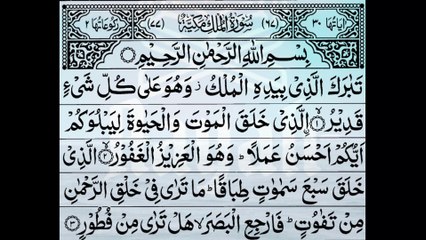 اٰیَاتُهَا ٣٠ (٦٧) سُوْرَةُ الْمُلْكِ مَكِّیَّةٌ (٧٧) رُكُوْعَاتُهَا ٢
بِسْمِ اللّٰهِ الرَّحْمٰنِ الرَّحِیْمِ
تَبٰرَكَ الَّذِیْ بِیَدِهِ الْمُلْكُ ز وَهُوَ عَلٰى كُلِّ شَیْءٍ
قَدِیْرُ ۙ﴿١﴾ اِۨلَّذِیْ خَلَقَ الْمَوْتَ وَالْحَیٰوةَ لِیَبْلُوَكُمْ
اَیُّكُمْ اَحْسَنُ عَمَلًا ؕ وَهُوَ الْعَزِیْزُ الْغَفُوْرُ ۙ﴿٢﴾ الَّذِیْ
خَلَقَ سَبْعَ سَمٰوٰتٍ طِبَاقًا ؕ مَا تَرٰى فِیْ خَلْقِ الرَّحْمٰنِ
مِنْ تَفٰوُتٍ ؕ فَارْجِعِ الْبَصَرَ ۙ هَلْ تَرٰى مِنْ فُطُوْرٍ ﴿٣﴾